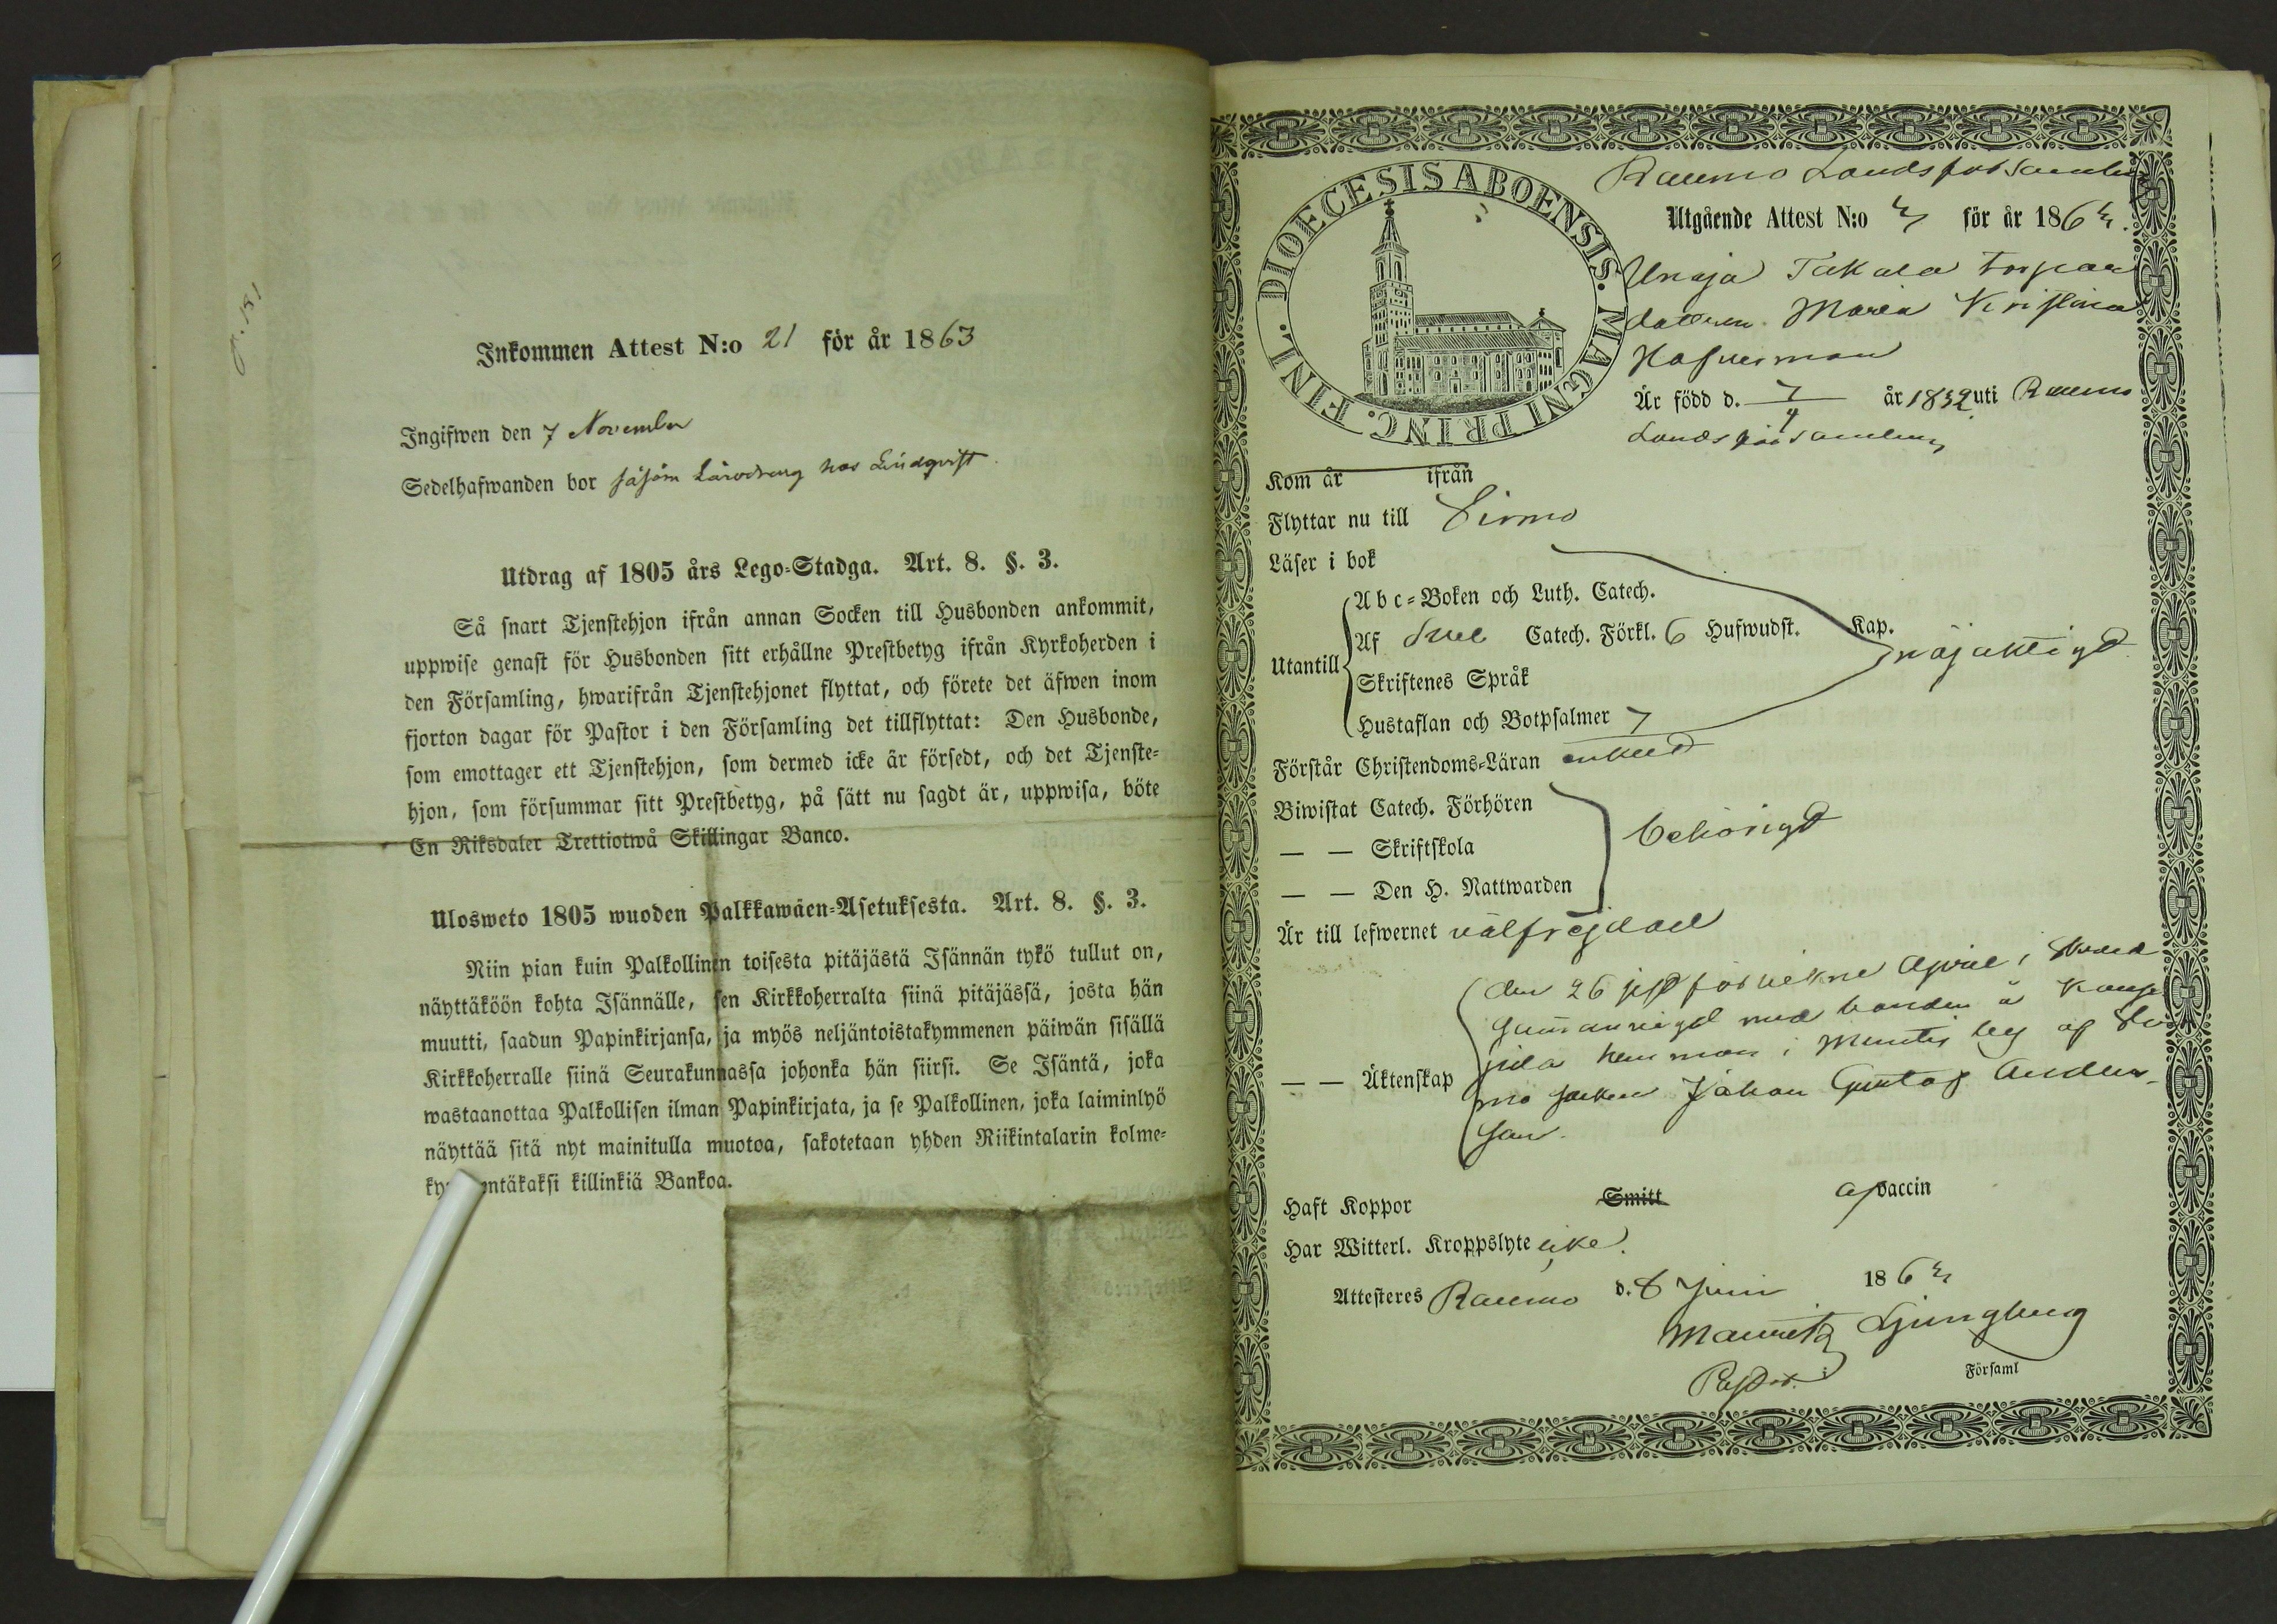 Inkommen Attest N:o 21 för år 1863
Ingifwen den 7 November
Sedelhafwanden bor såsom Lärodreng hos Lindqvist
Utdrag af 1805 års Lego-Stadga. Art. 8. §. 3.
Så snart Tjenstehjon ifrån annan Socken till Husbonden ankommit,
uppwise genast för Husbonden sitt erhållne Prestbetyg ifrån Kyrkoherden i
den Församling, hwarifrån Tjenstehjonet flyttat, och förete det äfwen inom
fjorton dagar för Pastor i den Församling det tillflyttat: Den Husbonde,
som emottager ett Tjenstehjon, som dermed icke är försedt, och det Tjenste-
hjon, som försummar sitt Prestbetyg, på sätt nu sagdt är, uppwisa, böte
En Riksdaler Trettiotwå Skillingar Banco.
Ulosweto 1805 wuoden Palkkawäen-Asetuksesta. Art. 8. §. 3.
Niin pian kuin Palkollinen toisesta pitäjästä Isännän tykö tullut on,
näyttäköön kohta Isännälle, sen Kirkkoherralta siinä pitäjässä, josta hän
muutti, saadun Papinkirjansa, ja myös neljäntoistakymmenen päiwän sisällä
Kirkkoherralle siinä Seurakunnassa johonka hän siirsi. Se Isäntä, joka
wastaanottaa Palkollisen ilman Papinkirjata, ja se Palkollinen, joka laiminlyö
näyttää sitä nyt mainitulla muotoa, sakotetaan yhden Riikintalarin kolme-
ky entäkaksi killinkiä Bankoa.
DIOECESIS ABOENSIS. MAGNI PRINC. FINL.
Raumo Landsförsamling
Utgående Attest N:o för år 186
Unaja Takala torpare
dottren Maria Kristina
Är född d. 7/4 år 1832 uti Raumo
Landsförsamling
Kom år ifrån
Flyttar nu till Virmo
Läser i bok
Abc-Boken och Luth. Catech.
Utantill Af Svel Catech. Förkl. 6 Hufwudst. Kap. nöjaktigt
Skriftenes Språk
Hustaflan och Botpsalmer 7
Förstår Christendoms-Läran enkelt
Biwistat Catech. Förhören
— — Skriftskola behörigt
— — Den H. Nattwarden
Är till lefwernet välfrejdad
den 26 sistförvikne April i
med bonden å
— — Äktenskap hemman i
socken Johan Gustaf Anders-
son.
Haft Koppor Smitt af vaccin
Har Witterl. Kroppslyte icke.
Attesteres Raumo d. 8 Juni 186
Mauritz Ljungberg
Pastor. Församl